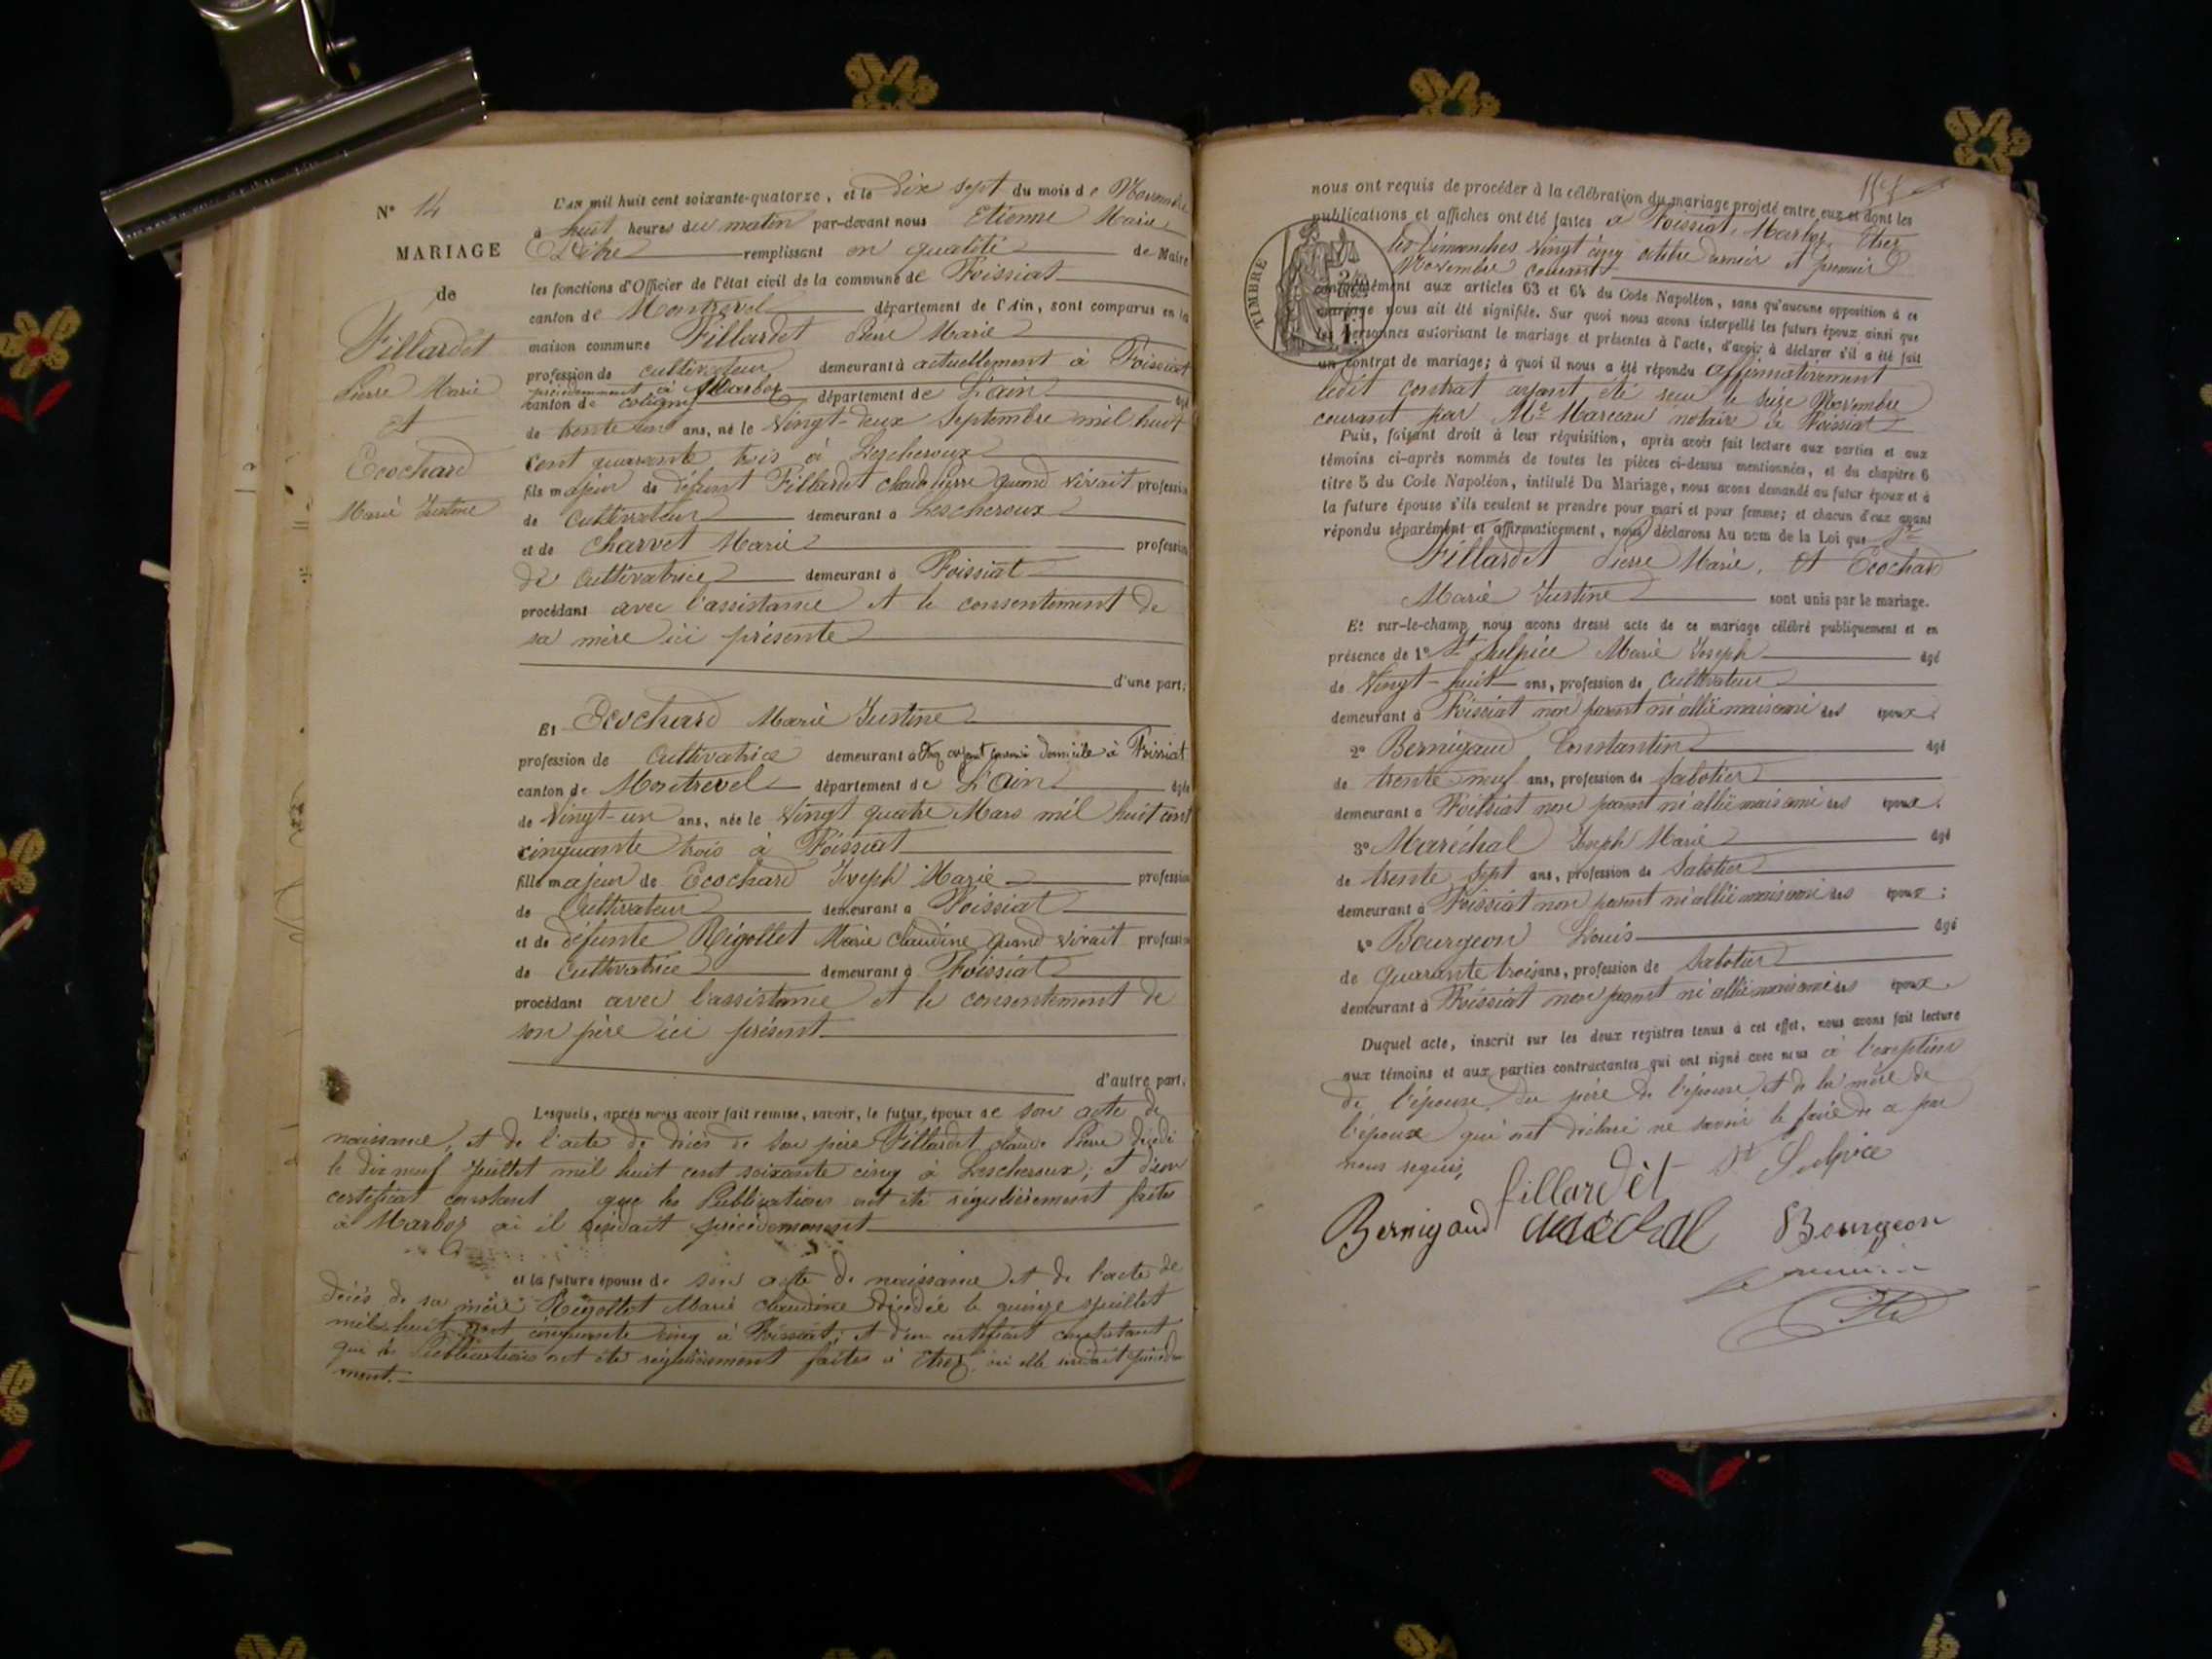 N° 14
MARIAGE
de
Fillardet
Pierre Marie
et
Ecochard
Marie Justine
L'AN mil huit cent soixante-quatorze, et le Dix sept du mois de Novembre
à huit heures du matin par-devant nous Etienne Marie
remplissant en qualité de Maire
les fonctions d'Officier de l'état civil de la commune de Foissiat
canton de Montrevel département de l'Ain, sont comparus en la
maison commune Fillardet Pierre Marie
profession de cultivateur demeurant à actuellement à Foissiat
précédemment à Marboz
canton de coligny département de L'ain âgé
de trente un ans, né le Vingt-deux Septembre mil huit
cent quarante trois à Lescheroux
fils majeur de défunt Fillardet Claude Pierre quand vivait profession
de Cultivateur demeurant à Lescheroux
et de Charvet Marie profession
de cultivatrice demeurant à Foissiat
procédant avec l'assistance et le consentement de
sa mère ici présente
d'une part;
Et Ecochard Marie Justine
profession de Cultivatrice demeurant à Etrez ayant domicile à Foissiat
canton de Montrevel département de L'Ain âgée
de Vingt-un ans, née le Vingt quatre Mars mil huit cent
cinquante trois à Foissiat
fille majeur de Ecochard Joseph Marie profession
de Cultivateur demeurant à Foissiat
et de défunte Rigollet Marie Claudine quand vivait profession
de Cultivatrice demeurant à Foissiat
procédant avec l'assistance et le consentement de
son père ici présent
d'autre part.
Lesquels, après nous avoir fait remise, savoir, le futur époux de son acte de
naissance, et de l'acte de décès de son père Fillardet Claude Pierre décédé
le dix neuf Juillet mil huit cent soixante cinq à Lescheroux; et d'un
certificat constant que les Publications ont été régulièrement faites
à Marboz où il résidait précédemment
et la future épouse de son acte de naissance et de l'acte de
décès de sa mère Rigollet Marie Claudine décédée le quinze Juillet
mil huit cent cinquante cinq à Foissiat; et d'un certificat constatant
que les Publications ont été régulièrement faites à Etrez où elle résidait précédem
ment.
nous ont requis de procéder à la célébration du mariage projeté entre eux et dont les
publications et affiches ont été faites à Foissiat, Marboz, Etrez
les Dimanches Vingt cinq octobre dernier et premier
Novembre courant
TIMBRE
conformément aux articles 63 et 64 du Code Napoléon, sans qu'aucune opposition à ce
mariage nous ait été signifiée. Sur quoi nous avons interpellé les futurs époux ainsi que
les personnes autorisant le mariage et présentes à l'acte, d'avoir à déclarer s'il a été fait
un contrat de mariage; à quoi il nous a été répondu affirmativement
ledit contrat ayant été reçu le seize Novembre
courant par Me Marceau notaire à Foissiat
Puis, faisant droit à leur réquisition, après avoir fait lecture aux parties et aux
témoins ci-après nommés de toutes les pièces ci-dessus mentionnées, et du chapitre 6
titre 5 du Code Napoléon, intitulé Du Mariage, nous avons demandé au futur époux et à
la future épouse s'ils veulent se prendre pour mari et pour femme; et chacun d'eux ayant
répondu séparément et affirmativement, nous déclarons Au nom de la Loi que
Fillardet Pierre Marie, et Ecochard
Marie Justine sont unis par le mariage.
Et sur-le-champ nous avons dressé acte de ce mariage célébré publiquement et en
présence de 1° St Sulpice Marie Joseph âgé
de Vingt-huit ans, profession de Cultivateur
demeurant à Foissiat non parent ni allié mais ami des époux;
2° Bernigaud Constantin âgé
de trente neuf ans, profession de Sabotier
demeurant à Foissiat non parent ni allié mais ami des époux;
3° Maréchal Joseph Marie âgé
de trente sept ans, profession de Sabotier
demeurant à Foissiat non parent ni allié mais ami des époux;
4° Bourgeon Louis âgé
de quarante trois ans, profession de Sabotier
demeurant à Foissiat non parent ni allié mais ami des époux.
Duquel acte, inscrit sur les deux registres tenus à cet effet, nous avons fait lecture
aux témoins et aux parties contractantes qui ont signé avec nous à l'exeption
de l'épouse, du père de l'épouse et de la mère de
l'époux qui ont déclaré ne savoir le faire de ce par
nous requis,
fillardèt St Sulpice
Bernigaud Maréchal Bourgeon